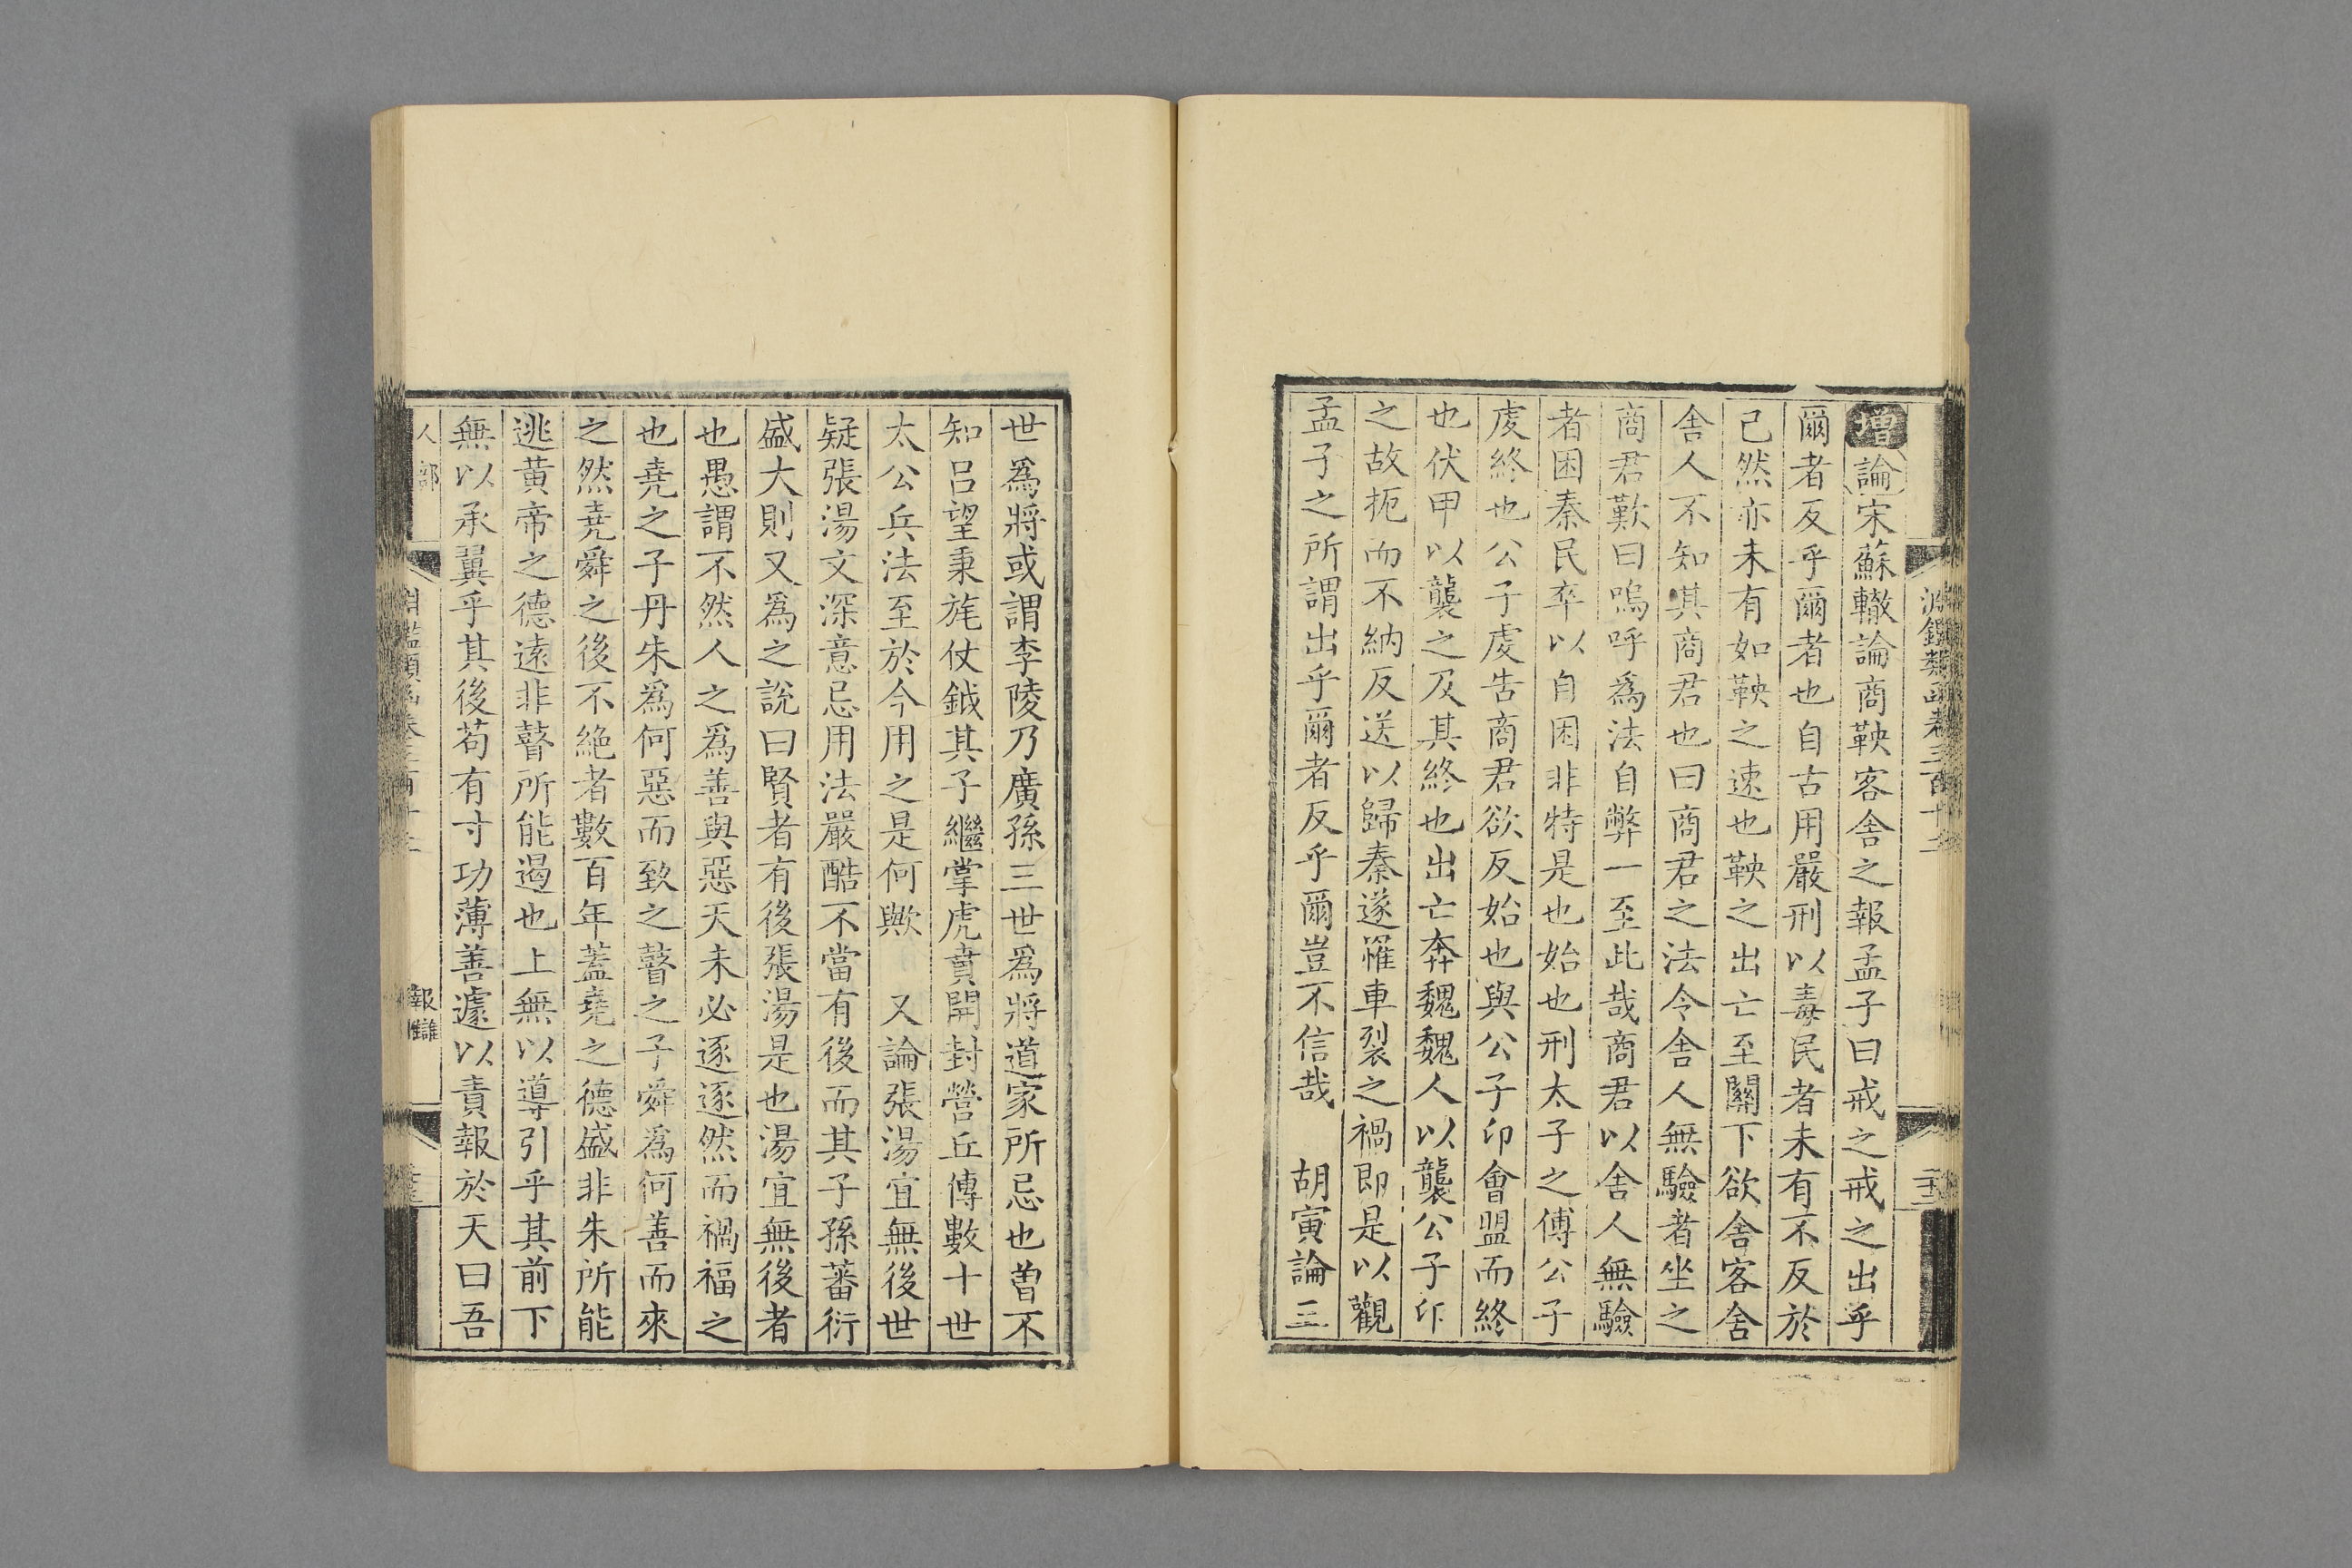 增論宋蘇轍論商鞅客舍之報孟子曰戒之戒之出乎
爾者反乎爾者也自古用嚴刑以毒民者未有不反於
己然亦未有如鞅之速也鞅之出亡至關下欲舍客舍
舍人不知其商君也曰商君之法令舍人無驗者坐之
商君歎曰嗚呼為法自弊一至此哉商君以舍人無驗
者困秦民卒以自困非特是也始也刑太子之傅公子
虔終也公子虔告商君欲反始也與公子卬會盟而終
也伏甲以襲之及其終也出亡奔魏魏人以襲公子卬
之故扼而不納反送以歸秦遂罹車裂之禍即是以觀
孟子之所謂出乎爾者反乎爾豈不信哉　胡寅論三
世爲將或謂李陵乃廣孫三世爲將道家所忌也曽不
知呂望秉旄仗鉞其子繼掌虎賁開封營丘傳數十世
太公兵法至於今用之是何歟　又論張湯宜無後世
疑張湯文深意忌用法嚴酷不當有後而其子孫蕃衍
盛大則又爲之說曰賢者有後張湯是也湯宜無後者
也愚謂不然人之爲善與惡天未必逐逐然而禍福之
也堯之子丹朱爲何惡而致之瞽之子舜爲何善而來
之然堯舜之後不絶者數百年蓋堯之德盛非朱所能
逃黄帝之德遠非瞽所能遏也上無以導引乎其前下
無以承翼乎其後茍有寸功薄善遽以責報於天曰吾
人部
報讎